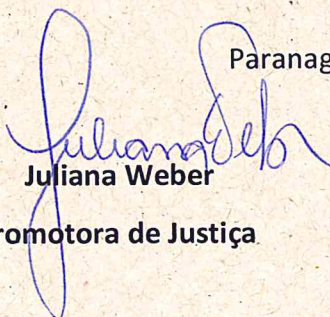 Paranag
Juliana Weber
Juliana Weber
romotora de Justiça